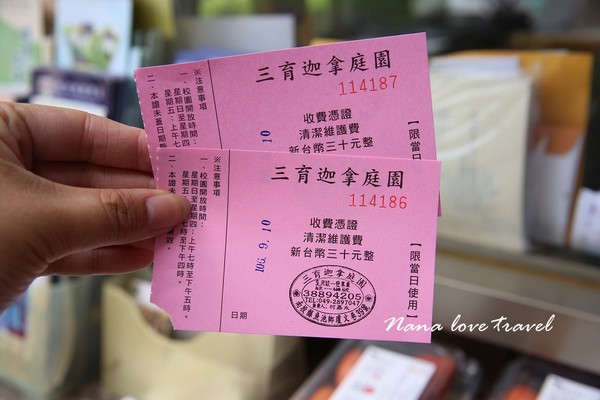 三育迦拿庭園
114187
收費憑證
清潔維護費
新台幣三十元整
【限當日
10
※注意事項
一、校園開放時間:
星期日至星期四:
星期五:上午七
二、本證未蓋日期
三育迦拿庭園
114186
收費憑證
清潔維護費
新台幣三十元整
【限當日使用】
106. 9. 10
日期
※注意事項
一、校園開放時間:
星期日至星期四:上午七時至下午五時。
星期五:上午七時至下午四時。
二、本證未蓋
無效。
三育迦拿庭園
38894205
TEL:049-2897047
Nana love travel